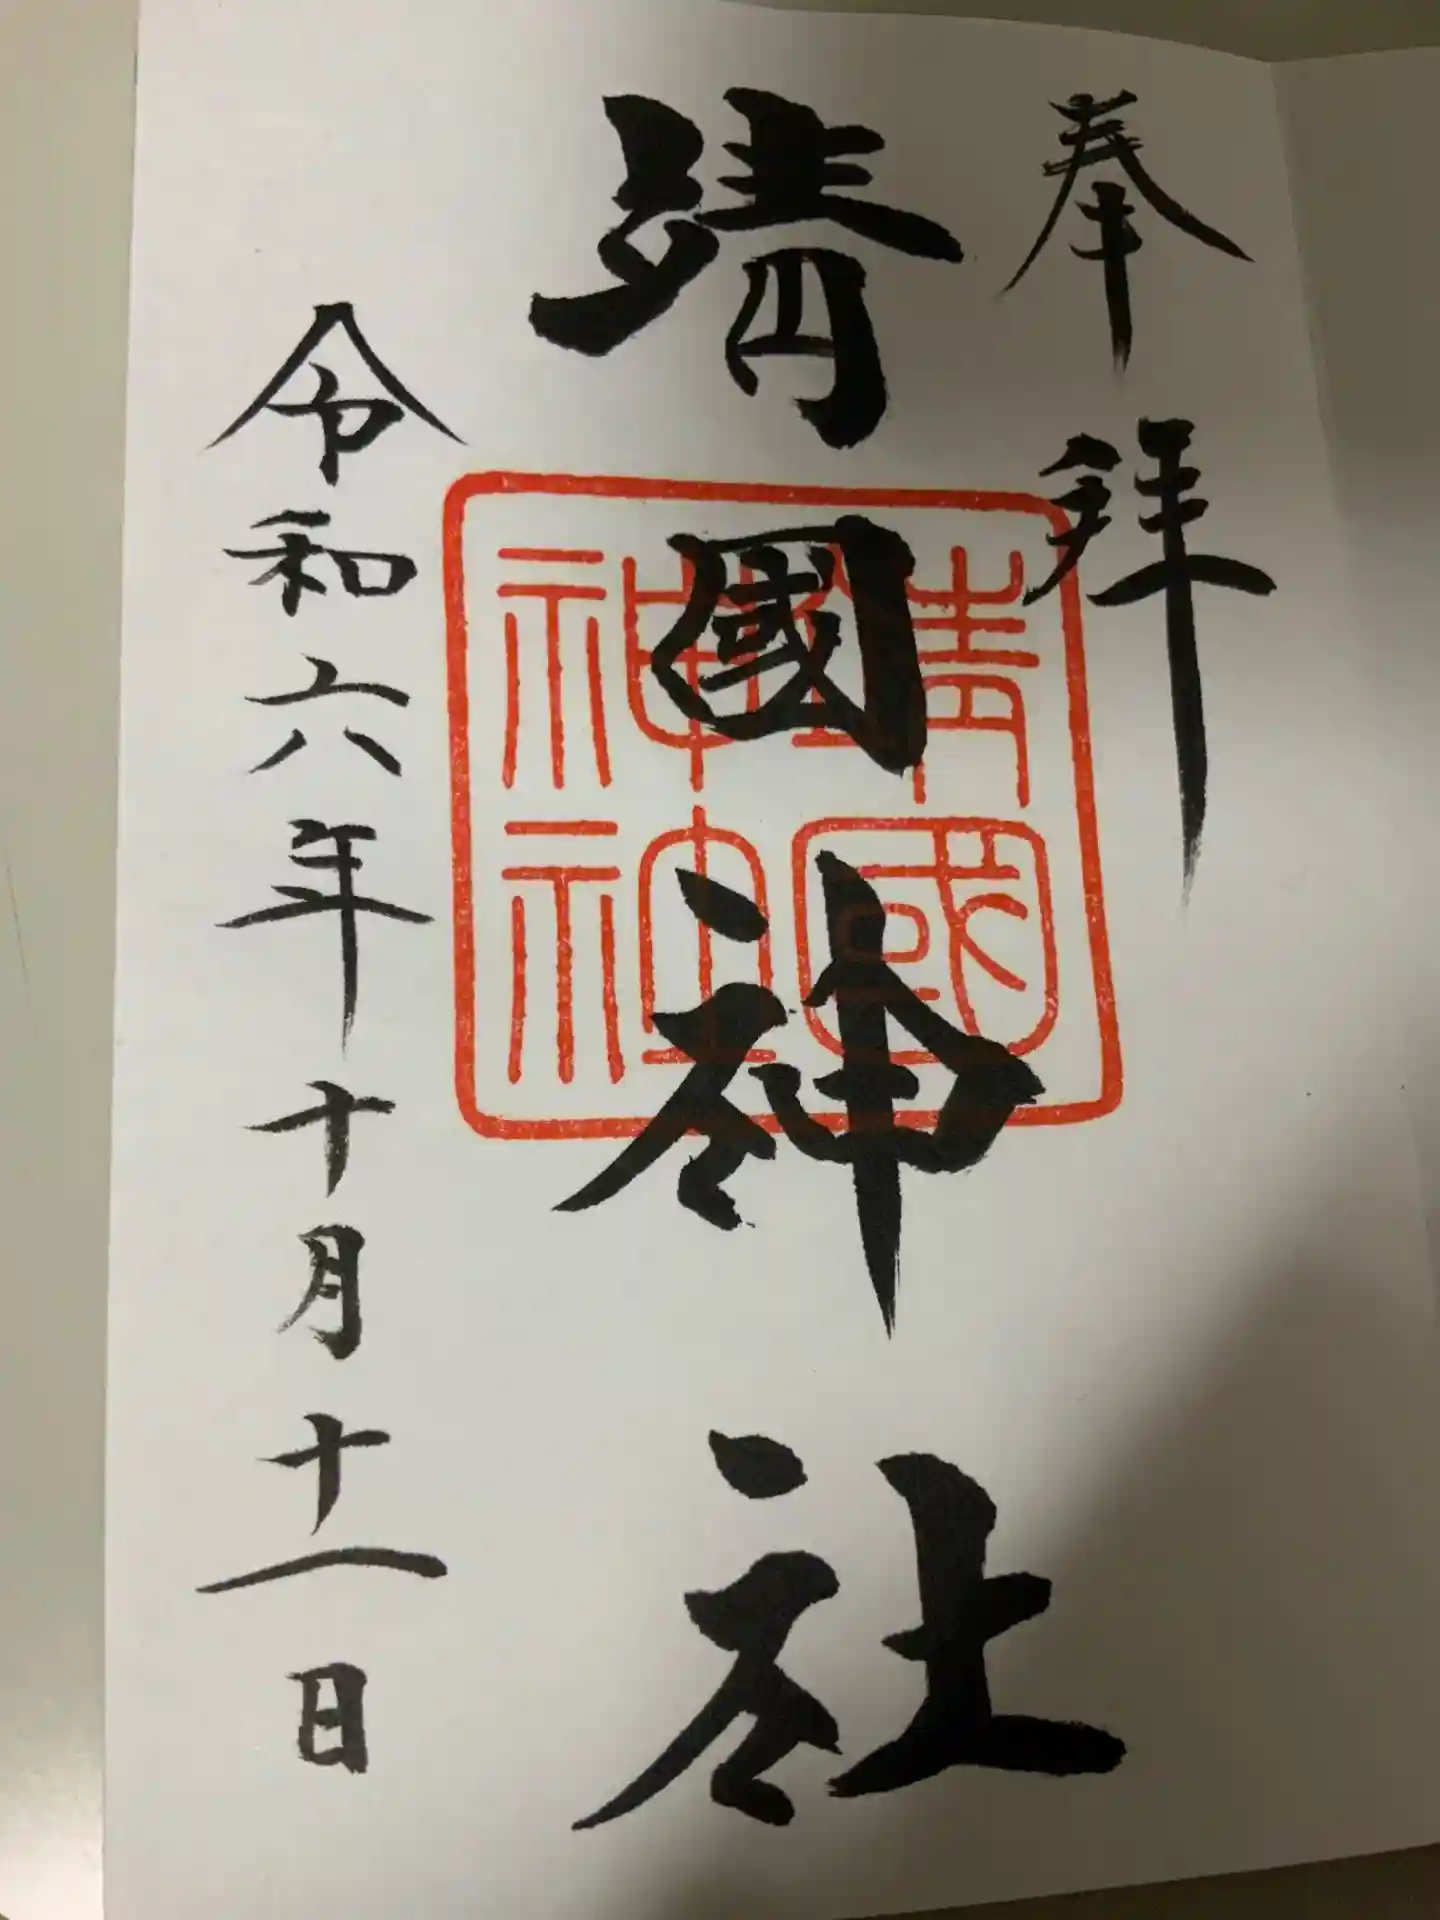 奉拝
靖國神社
靖國神社
令和六年十月十一日